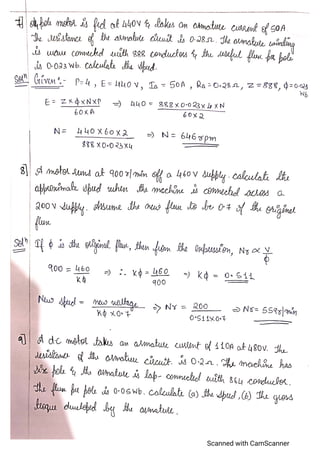 7] A 4 pole motor is fed at 440V & takes an armature current of 50A
The resistance of the armature circuit is 0.28Ω. The armature winding
is wave connected with 888 conductors & the useful flux per pole
is 0.023 Wb. Calculate the speed.
Solⁿ Given:- P=4, E=440V, Ia = 50A, Ra=0.28Ω, Z=888, ϕ=0.023 Wb
E = Z×ϕ×N×P / 60×A ⇒ 440 = 888×0.023×4×N / 60×2
N = 440×60×2 / 888×0.023×4 ⇒ N = 646 rpm
8] A motor runs at 900 r/min off a 460V supply. Calculate the
approximate speed when the machine is connected across a
200V supply. Assume the new flux to be 0.7 of the original
flux.
Solⁿ If ϕ is the original flux, then from the expression, Nr ∝ V/ϕ
900 = 460/Kϕ ⇒ ∴ Kϕ = 460/900 ⇒ Kϕ = 0.511
New speed = new voltage / Kϕ×0.7 ⇒ Nr = 200 / 0.511×0.7 ⇒ Nr = 559 r/min
9] A d.c motor takes an armature current of 110A at 480V. The
resistance of the armature circuit is 0.2Ω. The machine has
six pole & the armature is lap-connected with 864 conductor.
The flux per pole is 0.05Wb. calculate (a) the speed, (b) The gross
torque developed by the armature.
Scanned with CamScanner